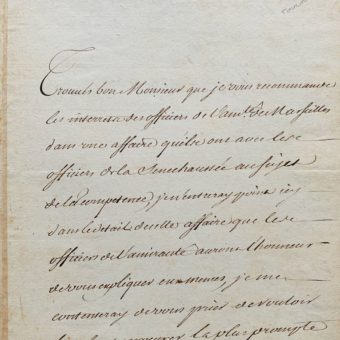 Trouvés bon Monsieur que je vous recommande
les interests des officiers de l'am.té de Marseilles
dans une affaire qu'ils ont avec les
officiers de la Senechaussée au sujet
de la competence, je n'entreray point icy
dans le détail de cette affaire que les
officiers de l'amirauté auront l'honneur
de vous expliquer eux mêmes, je me
contenteray de vous prier de vouloir
la plus prompte